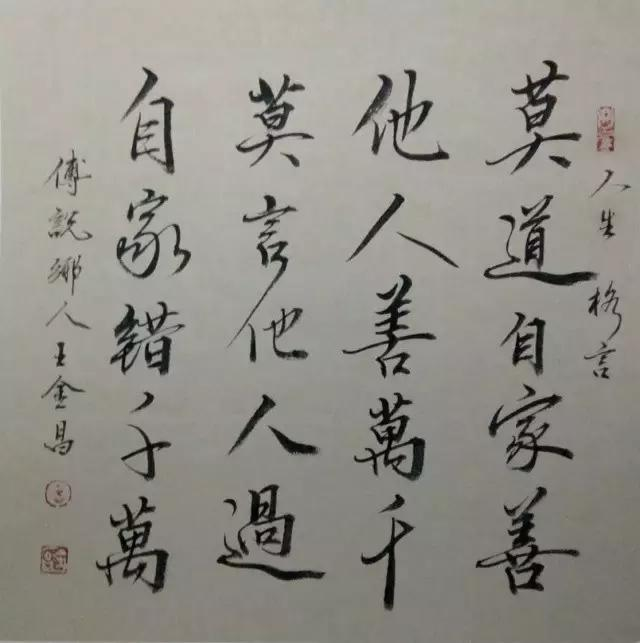 人生格言
莫道自家善
他人善萬千
莫言他人過
自家錯千萬
傅說鄉人王金昌